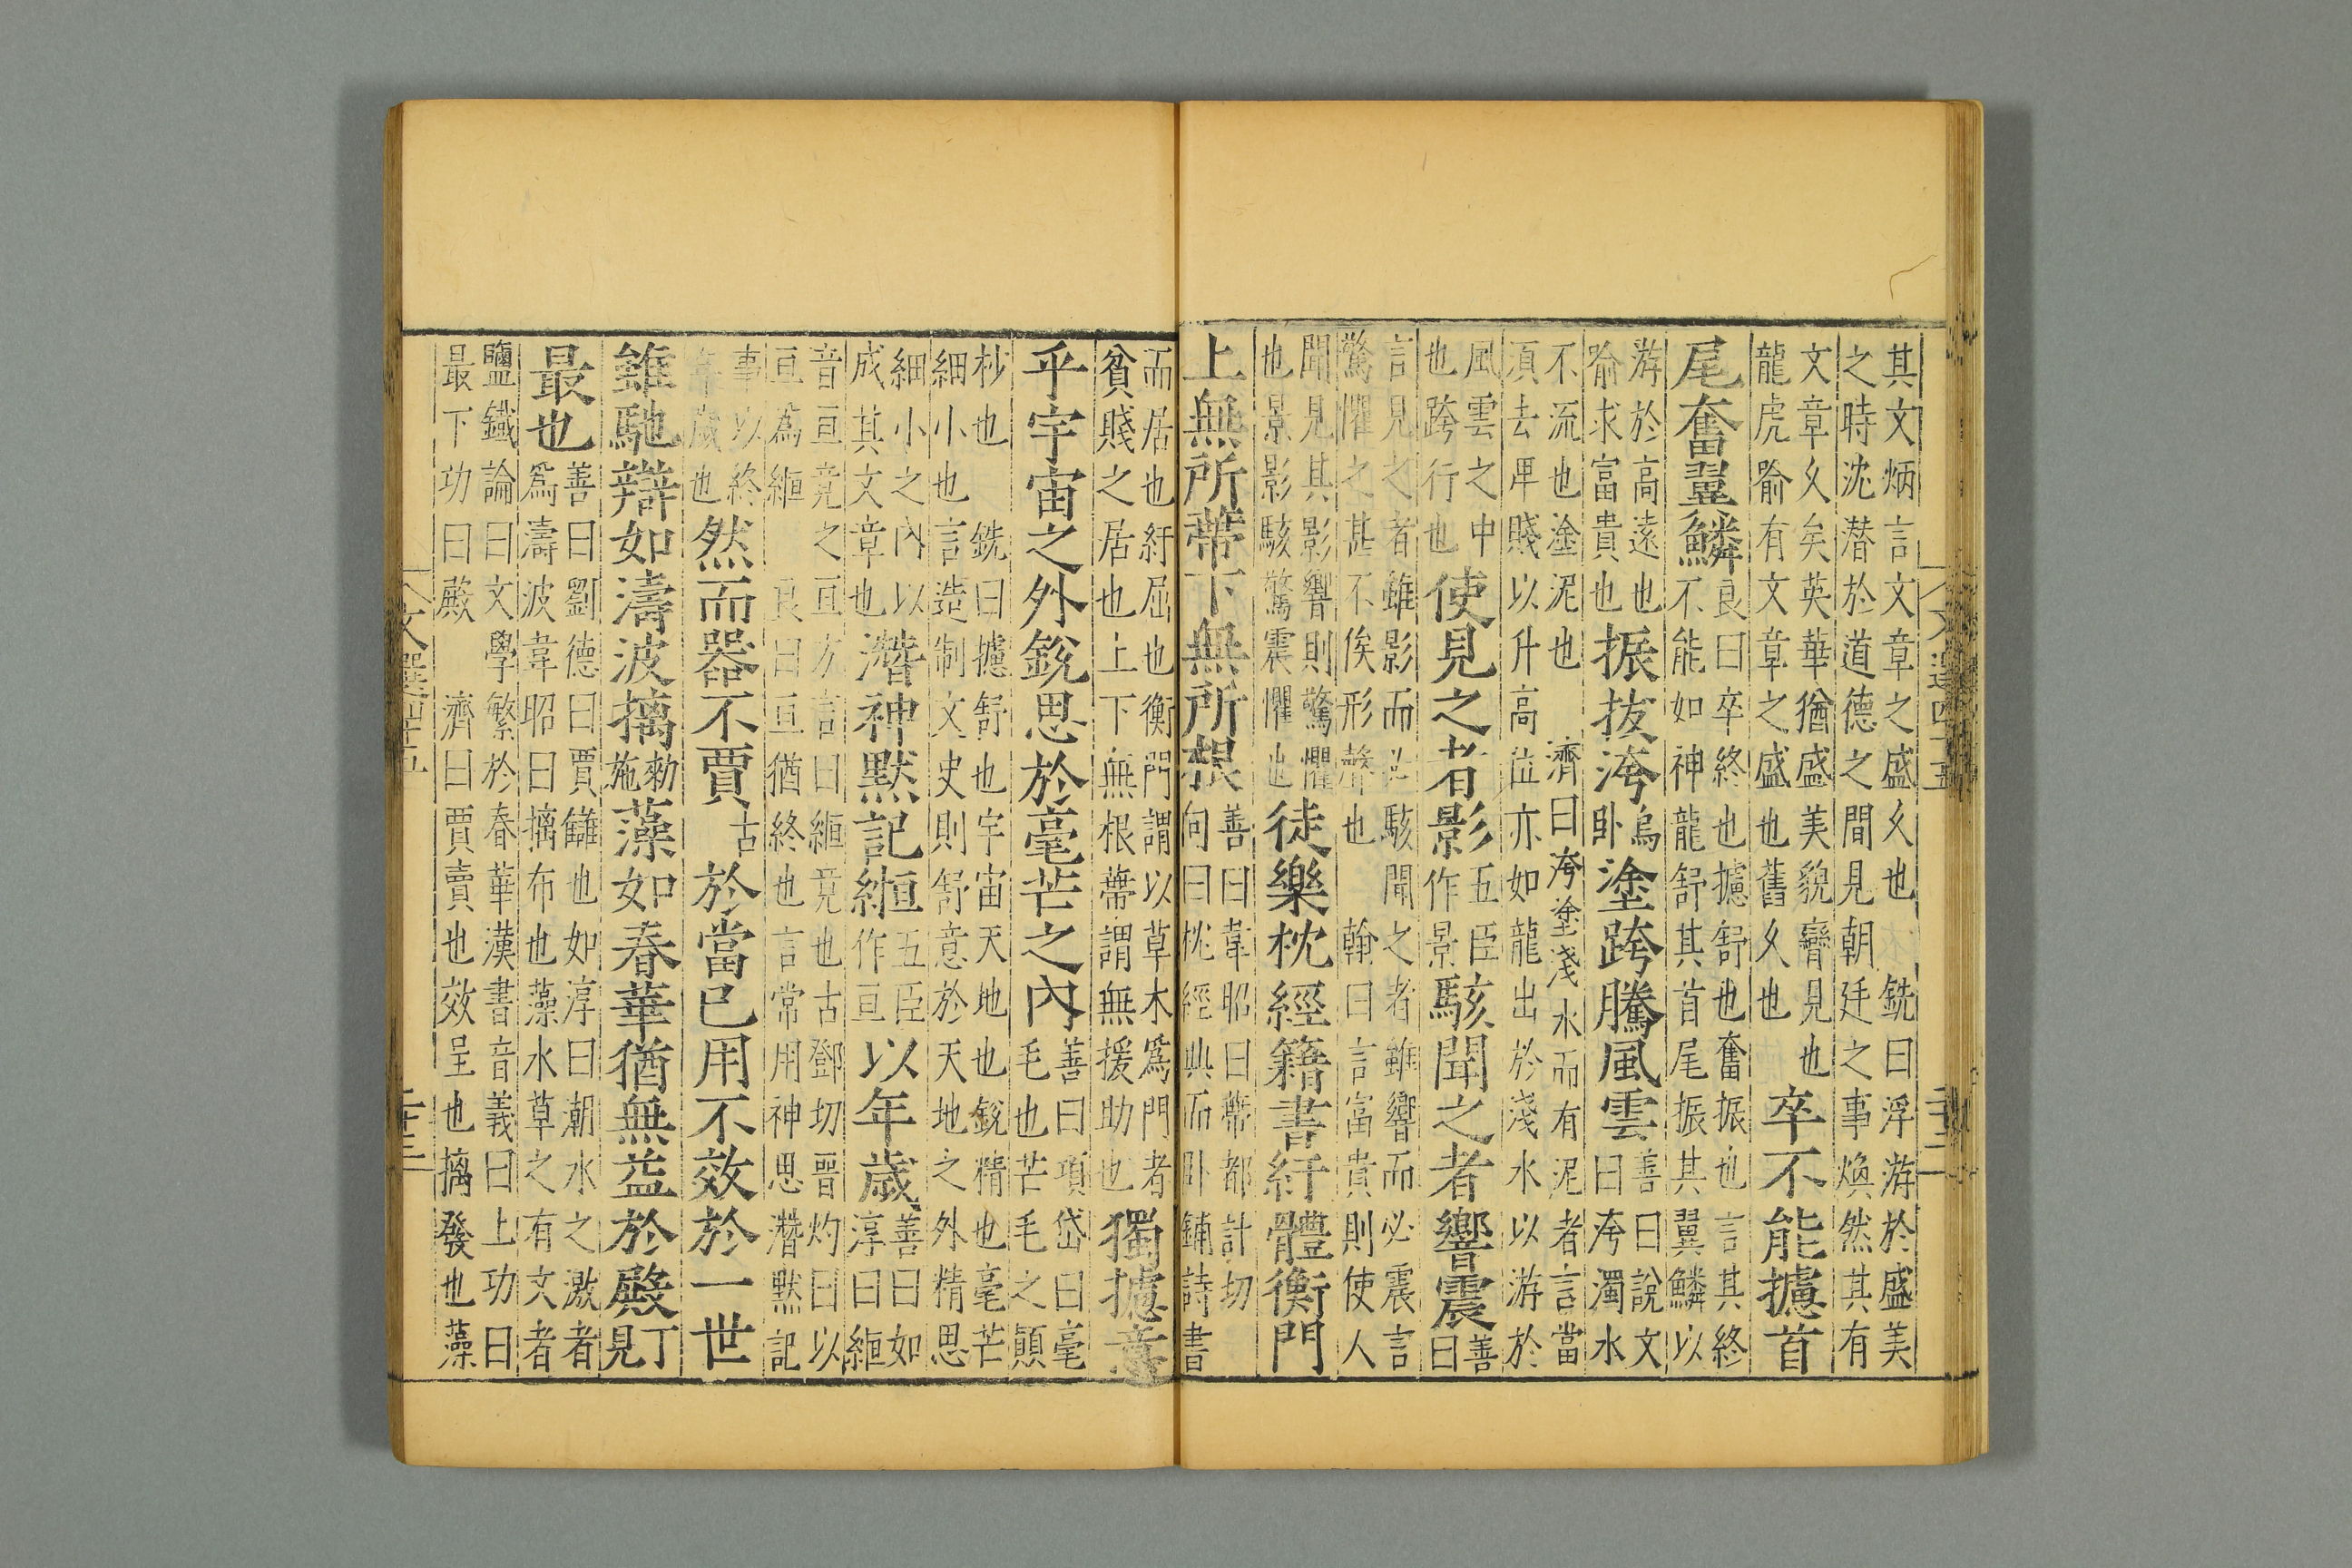 其文炳言文章之盛久也銑曰浮游於盛美
之時沈潜於道德之間見朝廷之事煥然其有
文章久矣英華猶盛美貌見也
龍虎踰有文章之盛也舊久也
卒不能攄首
尾奮翼鱗
良曰卒終也攄舒也奮振也言其終
不能如神龍舒其首尾振其翼鱗以
游於高遠也
喻求富貴也
振拔洿
烏
卧
塗跨騰風雲
善曰說文
曰洿濁水
不流也塗泥也濟曰洿塗淺水而有泥者言當
湏去卑賤以升高位亦如龍出於淺水以游於
風雲之中
也跨行也
使見之者影
五臣
作景
駭聞之者響震
善
曰
言見之者雖影而必駭聞之者雖響而必震言
驚懼之甚不俟形聲也翰曰言富貴則使人
聞見其影響則驚懼
也景影駭驚震懼也
徒樂枕經籍書紆體衡門
上無所蔕下無所根
善曰韋昭曰蔕都計切
向曰枕經典而卧鋪詩書
而居也紆屈也衡門謂以草木爲門者
貧賤之居也上下無根蔕謂無援助也
獨攄意
乎宇宙之外銳思於毫芒之內
善曰項岱曰毫
毛也芒毛之顛
杪也銑曰攄舒也宇宙天地也銳精也毫芒
細小也言造制文史則舒意於天地之外精思
細小之內以
成其文章也
潛神默記縆
五臣
作亘
以年歲
善曰如
淳曰縆
音亘竟之亘方言曰縆竟也古鄧切晉灼曰以
亘為縆良曰亘猶終也言常用神思潛默記
事以終
年歲也
然而器不賈
古
於當已用不效於一世
雖馳辯如濤波摛
勑
施
藻如春華猶無益於殿
丁
見
最也
善曰劉德曰賈讎也如淳曰潮水之激者
爲濤波韋昭曰摛布也藻水草之有文者
鹽鐵論曰文學繁於春華漢書音義曰上功曰
最下功曰殿濟曰賈賣也效呈也摛發也藻
文選四十五